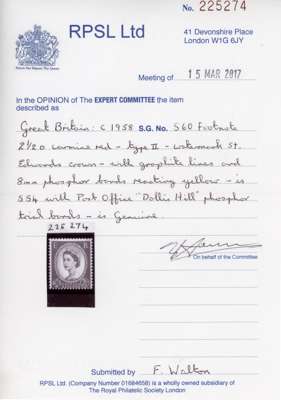 No. 225274
RPSL Ltd
41 Devonshire Place
London W1G 6JY
Meeting of 15 MAR 2017
In the OPINION of the EXPERT COMMITTEE the item
described as
Great Britain: c 1958 S.G. No: S60 Footnote
2½D carmine red - type II - watermark St.
Edwards crown - with graphite lines and
8mm phosphor bands reacting yellow - is
S54 with Post Office "Dollis Hill" phosphor
trial bands - is Genuine.
225 274
On behalf of the Committee
Submitted by F. Walton
RPSL Ltd. (Company Number 01684658) is a wholly owned subsidiary of
The Royal Philatelic Society London